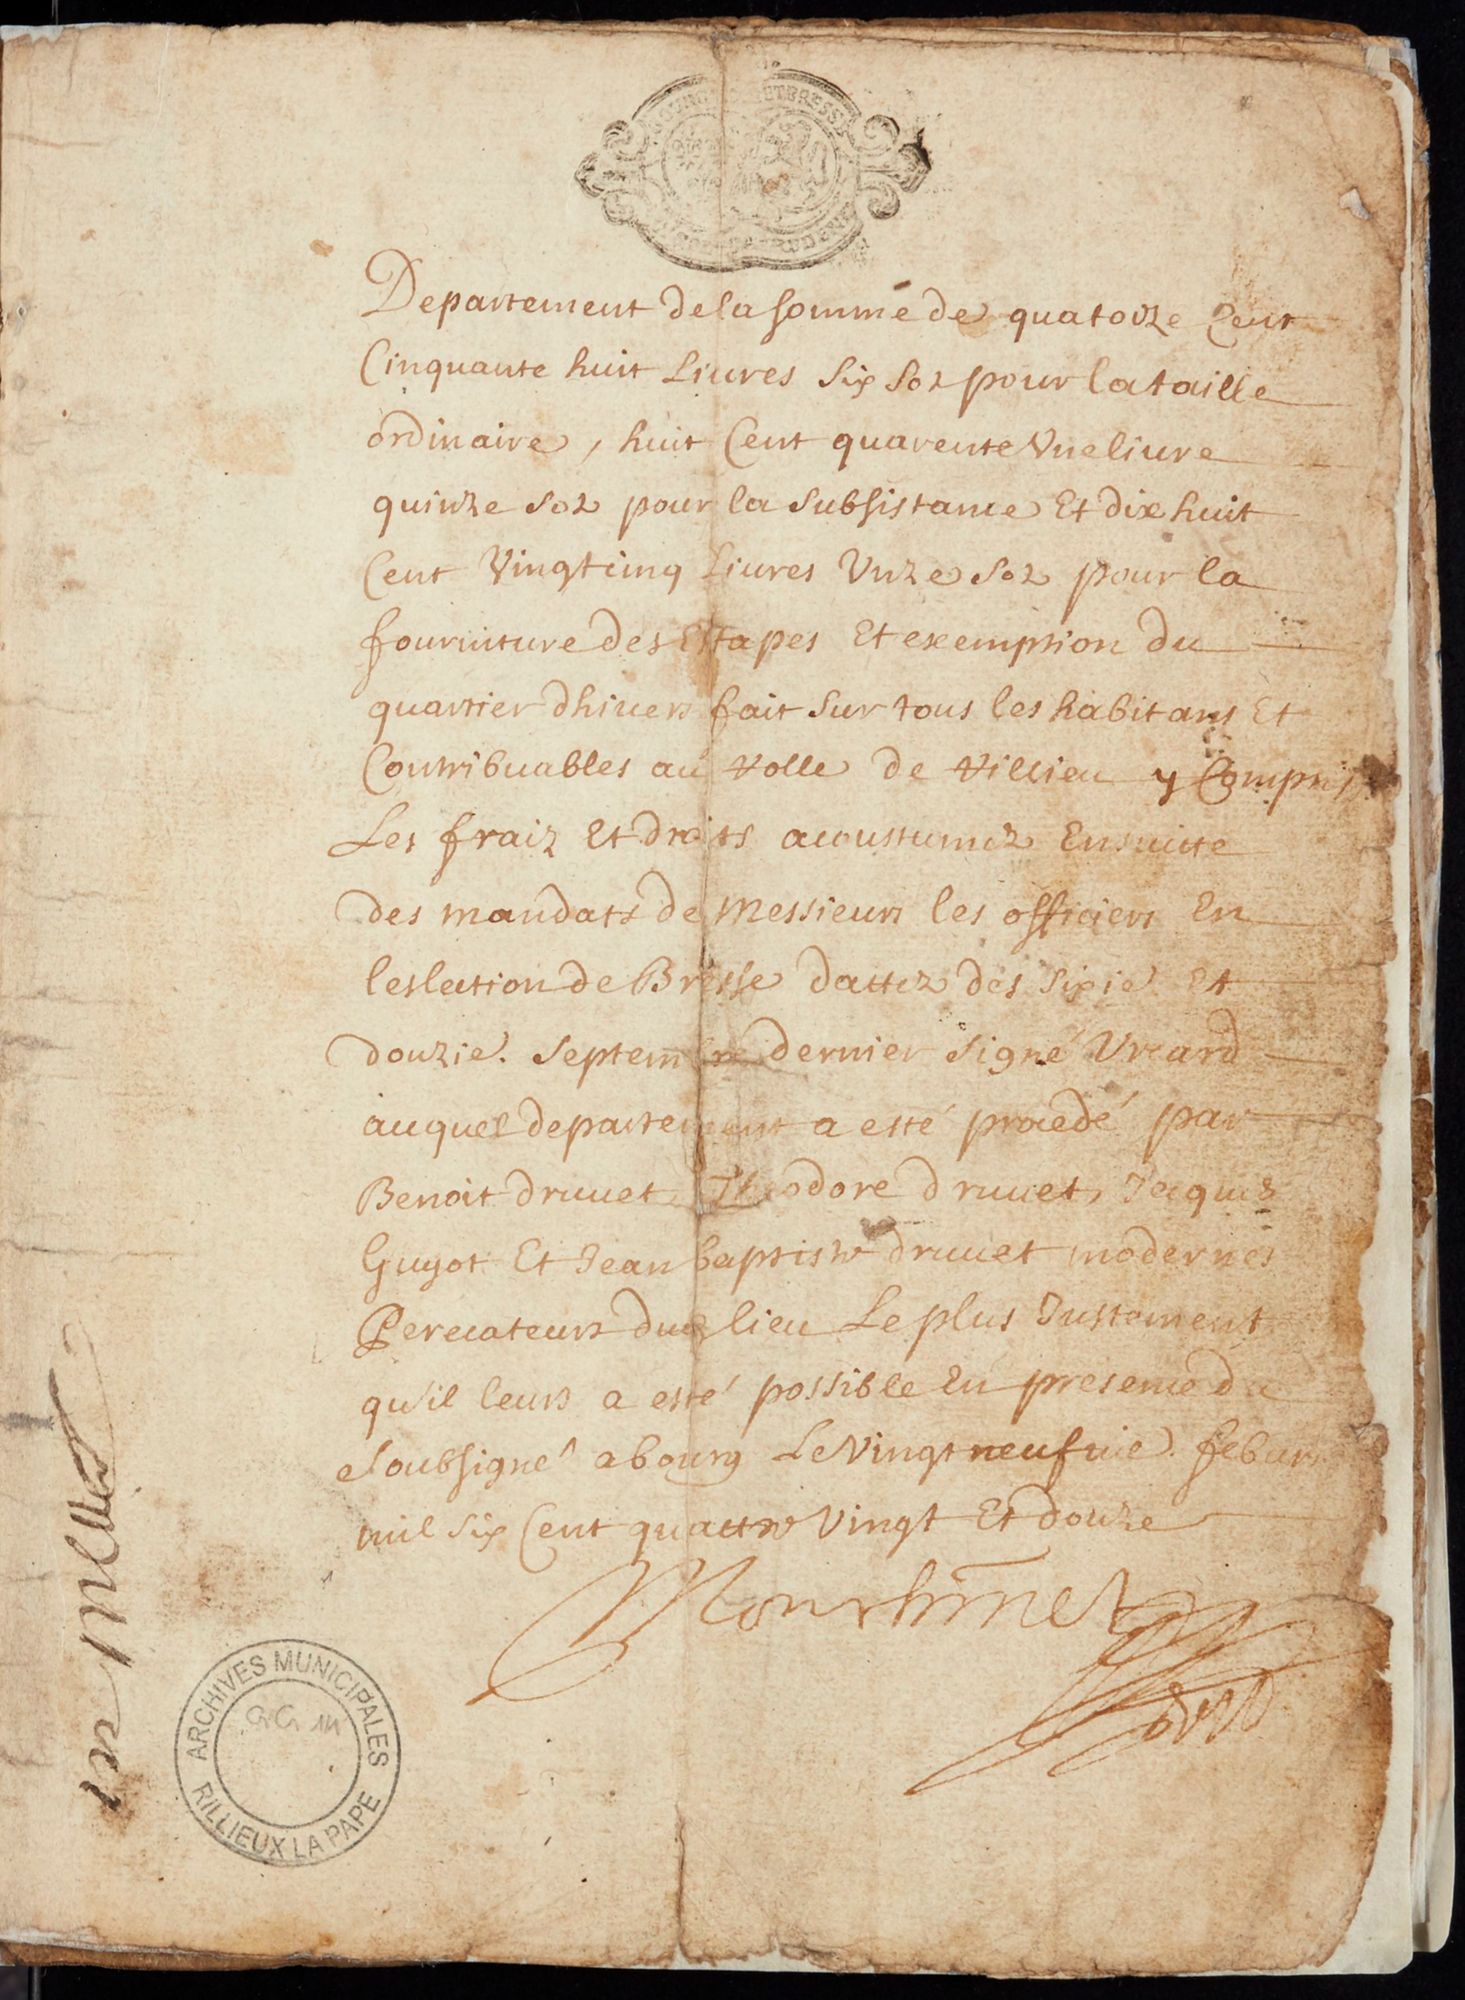 Departement de la somme de quatorze Cent
Cinquante huit Liures six solz pour la taille
ordinaire, huit Cent quarente Vne liure
quinze solz pour la subsistance Et dix huit
Cent Vingt cinq Liures Vnze solz pour la
fourniture des Estapes Et exemption du
quartier dhiuers fait sur tous les habitans Et
Contribuables au rolle de rillieu y Compris
Les fraiz Et droits acoustumez Ensuitte
des mandatz de Messieurs les officiers En
leslection de Bresse dattez des sixie. Et
douzie. Septembre dernier signé Vrard
auquel departement a esté procedé par
Benoit druuet, Theodore druuet, Jacques
Guyot Et Jean baptiste druuet modernes
Perecateurs dud lieu Le plus Justement
qu'il leurs a esté possible En presence du
soubsigné a bourg Le Vingt neufuie. febur
mil six Cent quattre Vingt Et douze
ARCHIVES MUNICIPALES
RILLIEUX LA PAPE